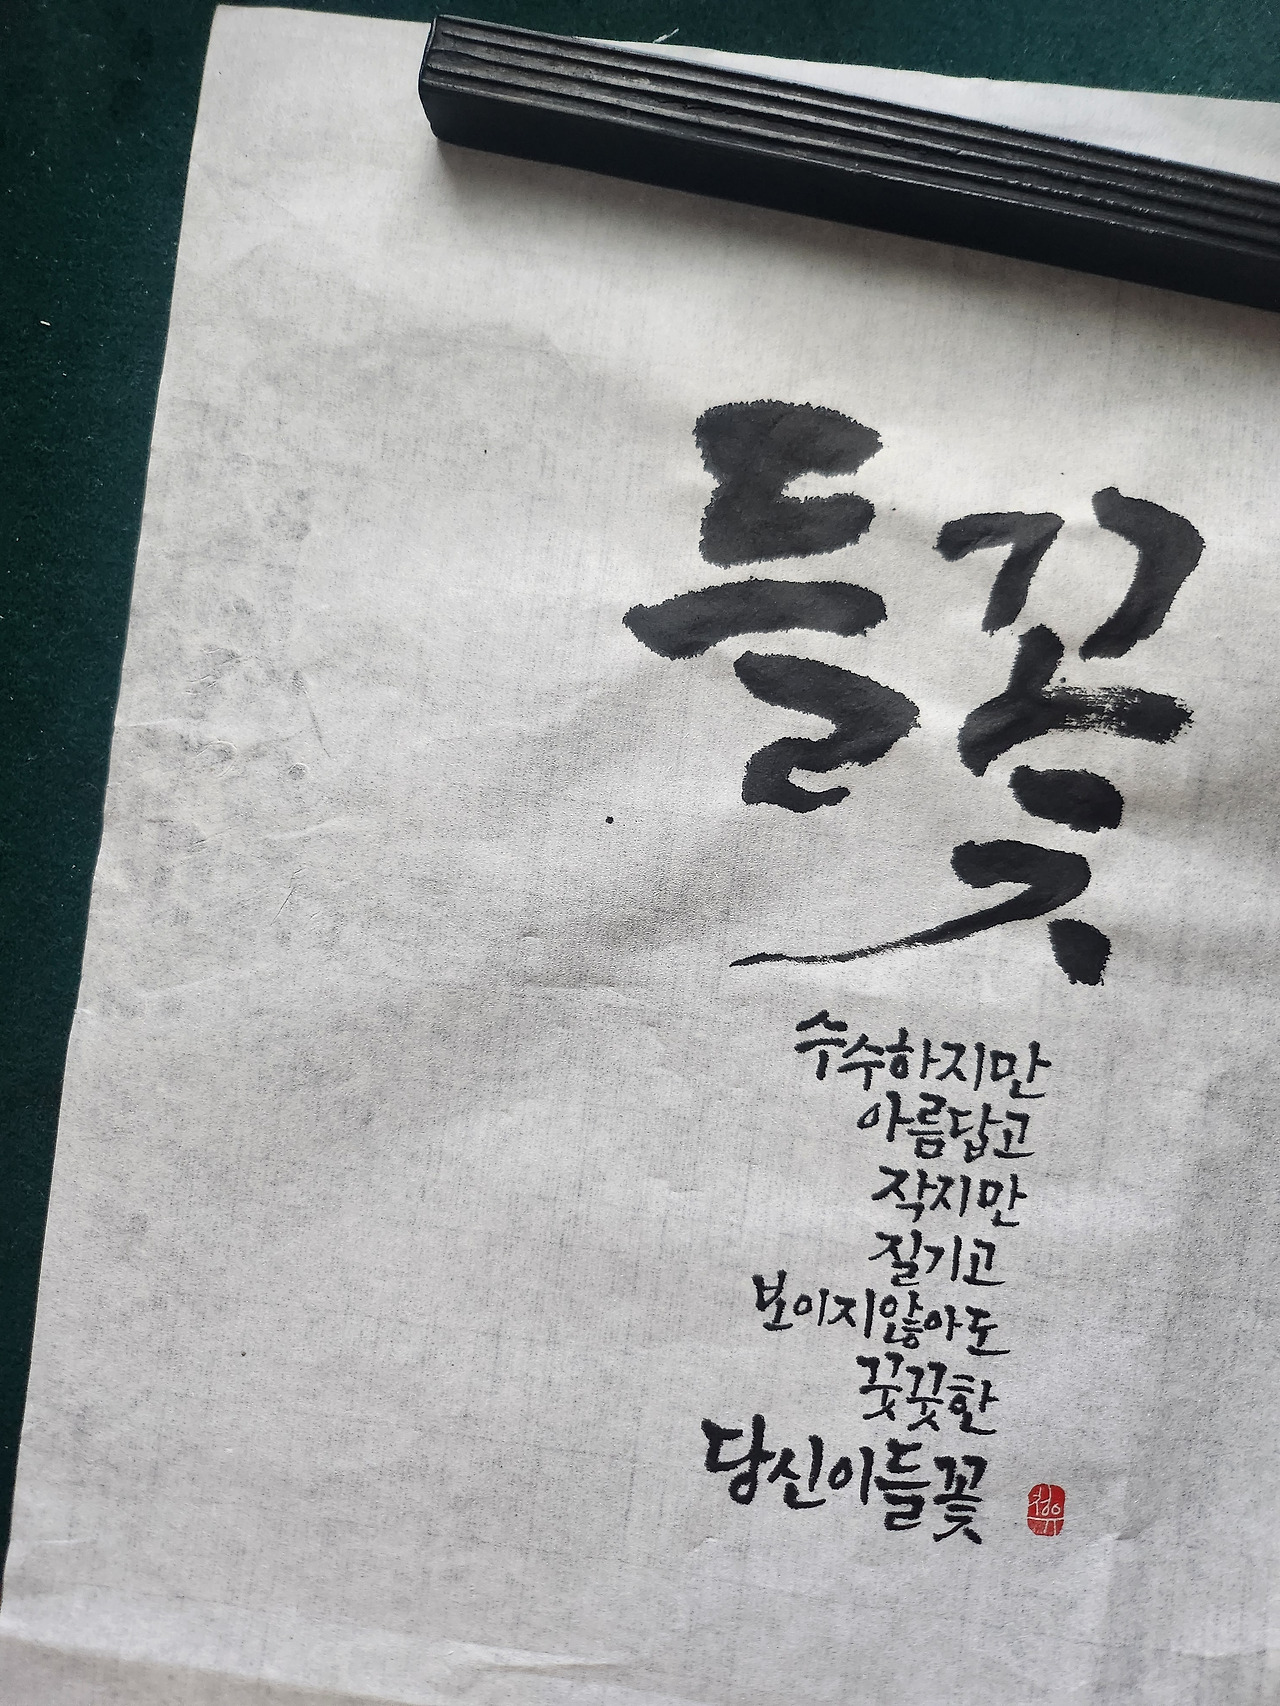 들꽃
수수하지만
아름답고
작지만
질기고
보이지않아도
꿋꿋한
당신이들꽃